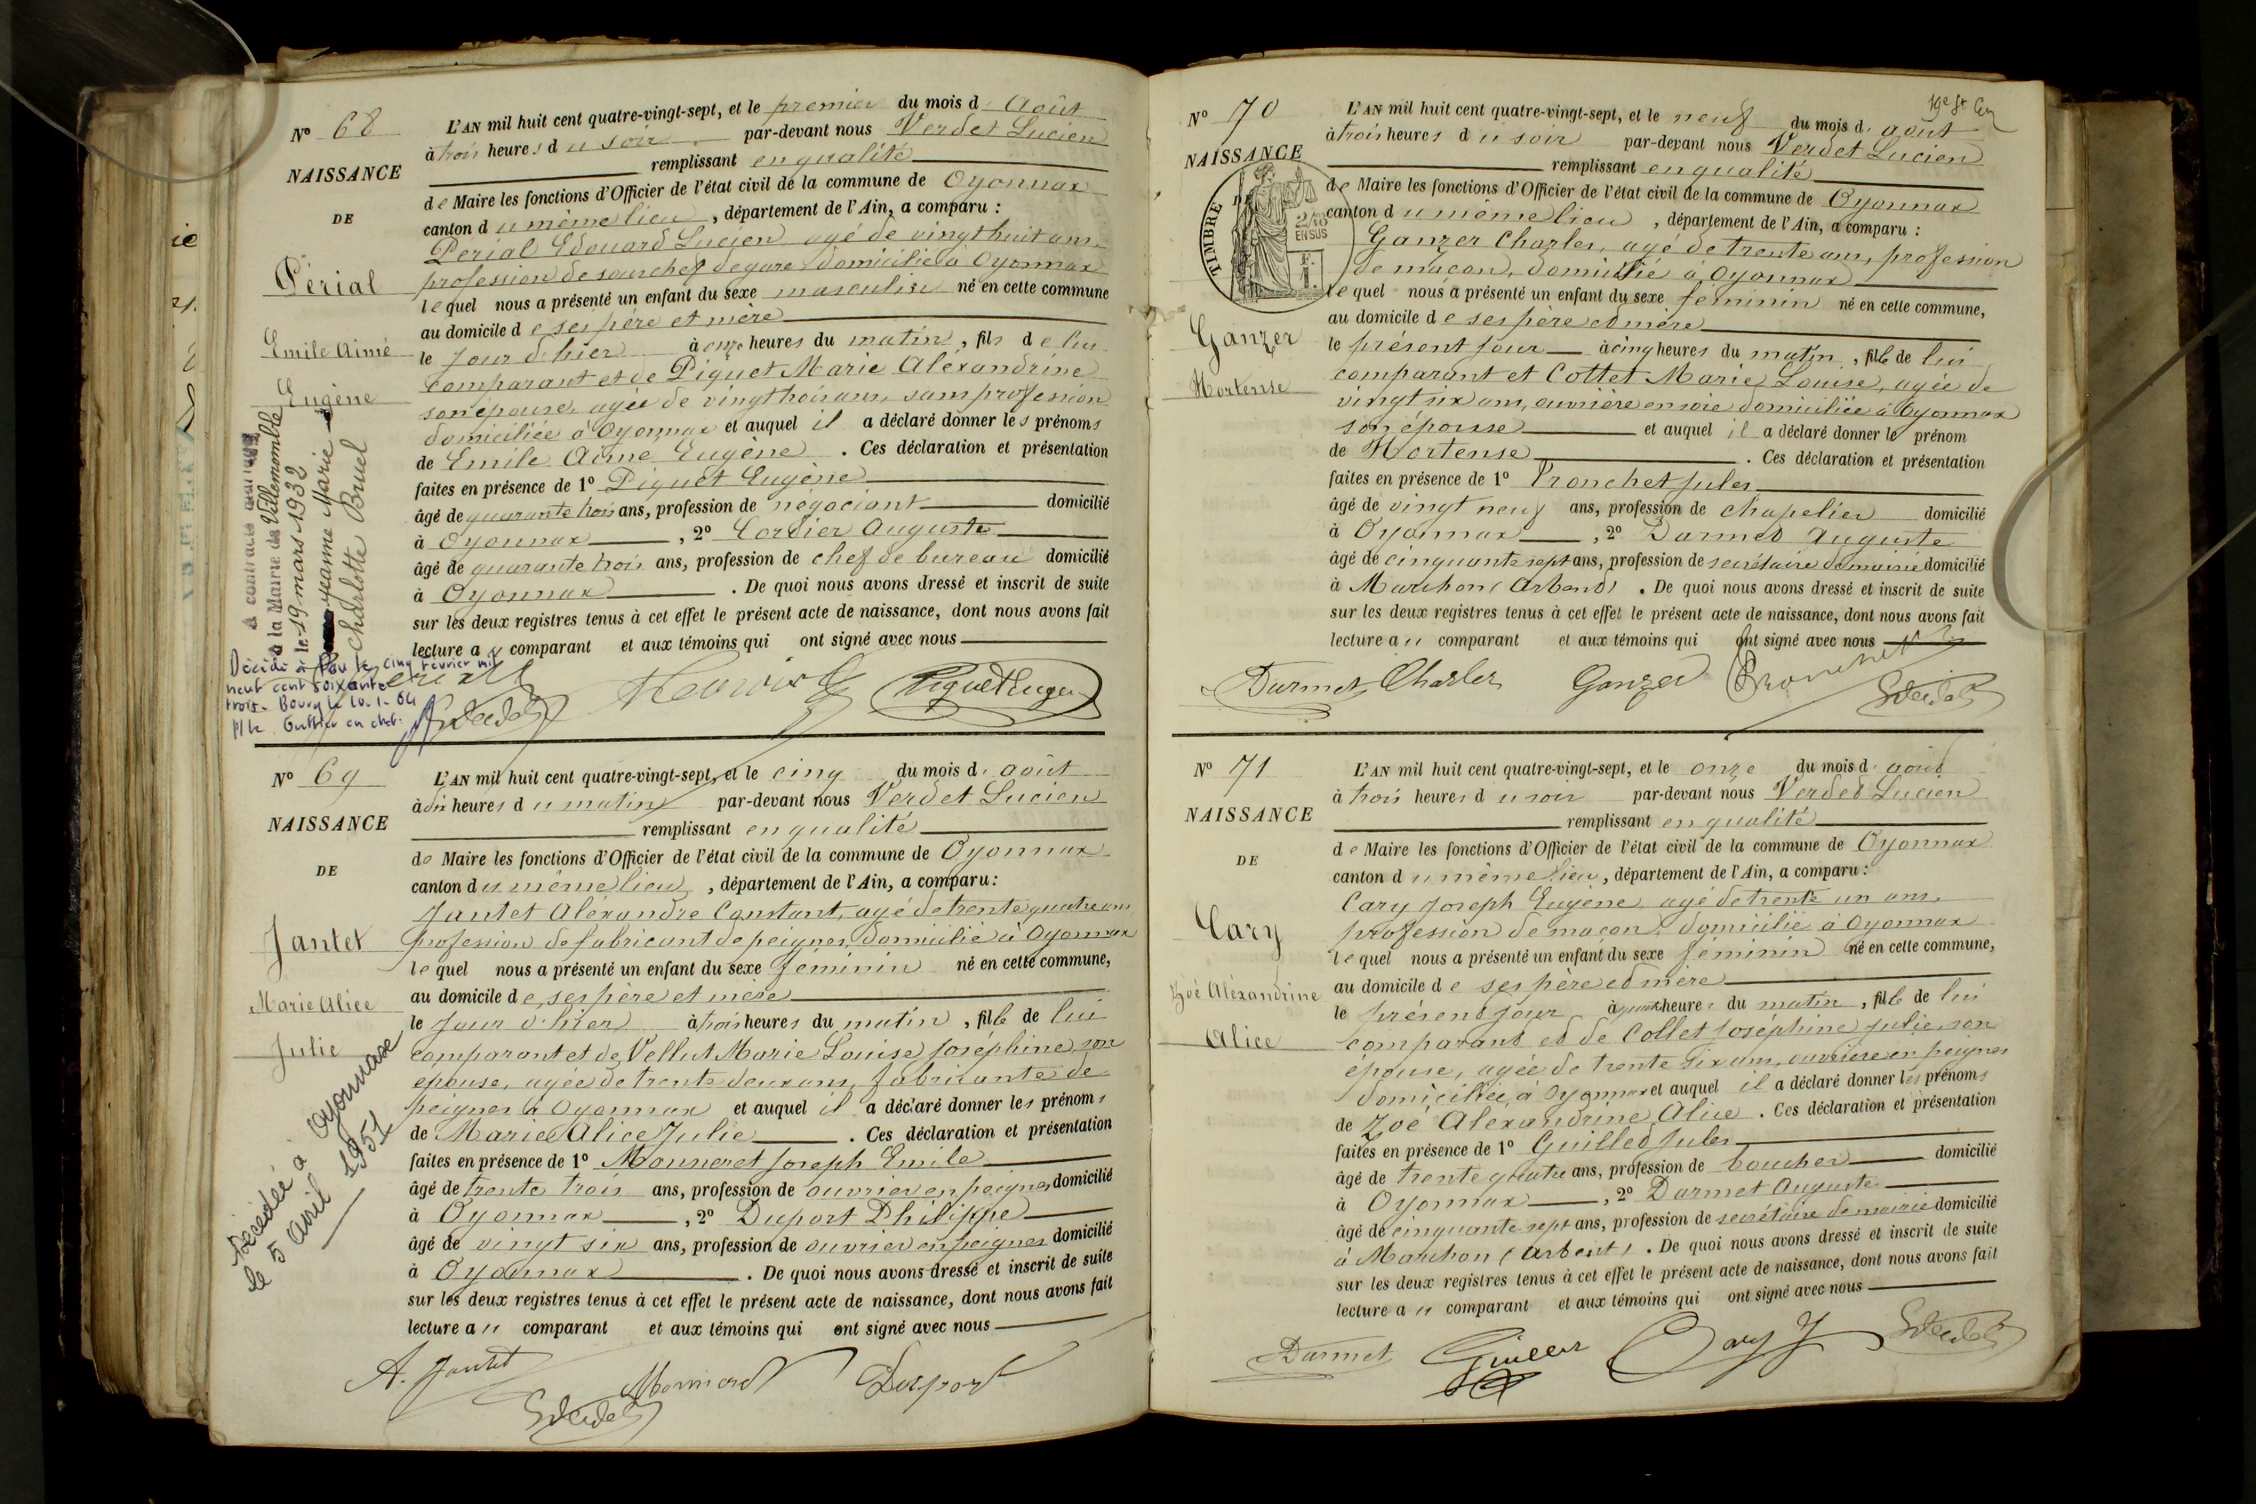 N° 68
NAISSANCE
DE
Périal
Emile Aimé
Eugène
A contracté mariage
à la Mairie de Villemomble
le 19 mars 1932
Marie
Charlotte Bruel
Décédé à cinq février mil
neuf cent soixante
trois. Bourg le 10-1-64
P/le Greffier en chef.
L'AN mil huit cent quatre-vingt-sept, et le premier du mois d'Août
à trois heures du soir par-devant nous Verdet Lucien
remplissant en qualité
de Maire les fonctions d'Officier de l'état civil de la commune de Oyonnax
canton du même lieu, département de l'Ain, a comparu :
Périal Edouard Lucien agé de vingt huit ans
profession de sous chef de gare domicilié à Oyonnax
lequel nous a présenté un enfant du sexe masculin né en cette commune
au domicile de ses père et mère
le jour d'hier à onze heures du matin, fils de lui
comparant et de Piquet Marie Aléxandrine
son épouse, agée de vingt trois ans, sans profession
domiciliée à Oyonnax et auquel il a déclaré donner les prénoms
de Emile Aimé Eugène. Ces déclaration et présentation
faites en présence de 1° Piquet Eugène
âgé de quarante trois ans, profession de négociant domicilié
à Oyonnax, 2° Cordier Auguste
âgé de quarante trois ans, profession de chef de bureau domicilié
à Oyonnax. De quoi nous avons dressé et inscrit de suite
sur les deux registres tenus à cet effet le présent acte de naissance, dont nous avons fait
lecture au comparant et aux témoins qui ont signé avec nous
Piquet Eugène
N° 69
NAISSANCE
DE
Jantet
Marie Alice
Julie
Décédée à Oyonnax
le 5 avril 1951
L'AN mil huit cent quatre-vingt-sept, et le cinq du mois d'août
à dix heures du matin par-devant nous Verdet Lucien
remplissant en qualité
de Maire les fonctions d'Officier de l'état civil de la commune de Oyonnax
canton du même lieu, département de l'Ain, a comparu :
Jantet Aléxandre Constant, agé de trente quatre ans
profession de fabricant de peignes, domicilié à Oyonnax
lequel nous a présenté un enfant du sexe féminin né en cette commune,
au domicile de ses père et mère
le jour d'hier à trois heures du matin, fille de lui
comparant et de Vellut Marie Louise Joséphine son
épouse, agée de trente deux ans, fabricante de
peignes à Oyonnax et auquel il a déclaré donner les prénoms
de Marie Alice Julie. Ces déclaration et présentation
faites en présence de 1° Monneret Joseph Emile
âgé de trente trois ans, profession de ouvrier en peignes domicilié
à Oyonnax, 2° Duport Philippe
âgé de vingt six ans, profession de ouvrier en peignes domicilié
à Oyonnax. De quoi nous avons dressé et inscrit de suite
sur les deux registres tenus à cet effet le présent acte de naissance, dont nous avons fait
lecture au comparant et aux témoins qui ont signé avec nous
A. Jantet Duport
N° 70
NAISSANCE
DE
TIMBRE
2/10
EN SUS
Ganzer
Hortense
L'AN mil huit cent quatre-vingt-sept, et le neuf du mois d'août
à trois heures du soir par-devant nous Verdet Lucien
remplissant en qualité
de Maire les fonctions d'Officier de l'état civil de la commune de Oyonnax
canton du même lieu, département de l'Ain, a comparu :
Ganzer Charles, agé de trente ans, profession
de maçon, domicilié à Oyonnax
lequel nous a présenté un enfant du sexe féminin né en cette commune,
au domicile de ses père et mère
le présent jour à cinq heures du matin, fille de lui
comparant et Cottet Marie Louise, agée de
vingt six ans, ouvrière en soie domiciliée à Oyonnax
son épouse et auquel il a déclaré donner le prénom
de Hortense. Ces déclaration et présentation
faites en présence de 1° Tronchet Jules
âgé de vingt neuf ans, profession de chapelier domicilié
à Oyonnax, 2° Darmet Auguste
âgé de cinquante sept ans, profession de secrétaire de mairie domicilié
à Marchon (Arbent). De quoi nous avons dressé et inscrit de suite
sur les deux registres tenus à cet effet le présent acte de naissance, dont nous avons fait
lecture au comparant et aux témoins qui ont signé avec nous
Darmet Charles Ganzer
N° 71
NAISSANCE
DE
Cary
Zoé Aléxandrine
Alice
L'AN mil huit cent quatre-vingt-sept, et le onze du mois d'août
à trois heures du soir par-devant nous Verdet Lucien
remplissant en qualité
de Maire les fonctions d'Officier de l'état civil de la commune de Oyonnax
canton du même lieu, département de l'Ain, a comparu :
Cary Joseph Eugène agé de trente un ans,
profession de maçon, domicilié à Oyonnax
lequel nous a présenté un enfant du sexe féminin né en cette commune,
au domicile de ses père et mère
le présent jour à heures du matin, fille de lui
comparant et de Collet Joséphine Julie son
épouse, agée de trente six ans, ouvrière en peignes
domiciliée, à Oyonnax et auquel il a déclaré donner les prénoms
de Zoé Aléxandrine Alice. Ces déclaration et présentation
faites en présence de 1° Guillet Jules
âgé de trente quatre ans, profession de boucher domicilié
à Oyonnax, 2° Darmet Auguste
âgé de cinquante sept ans, profession de secrétaire de mairie domicilié
à Marchon (Arbent). De quoi nous avons dressé et inscrit de suite
sur les deux registres tenus à cet effet le présent acte de naissance, dont nous avons fait
lecture au comparant et aux témoins qui ont signé avec nous
Darmet Cary J